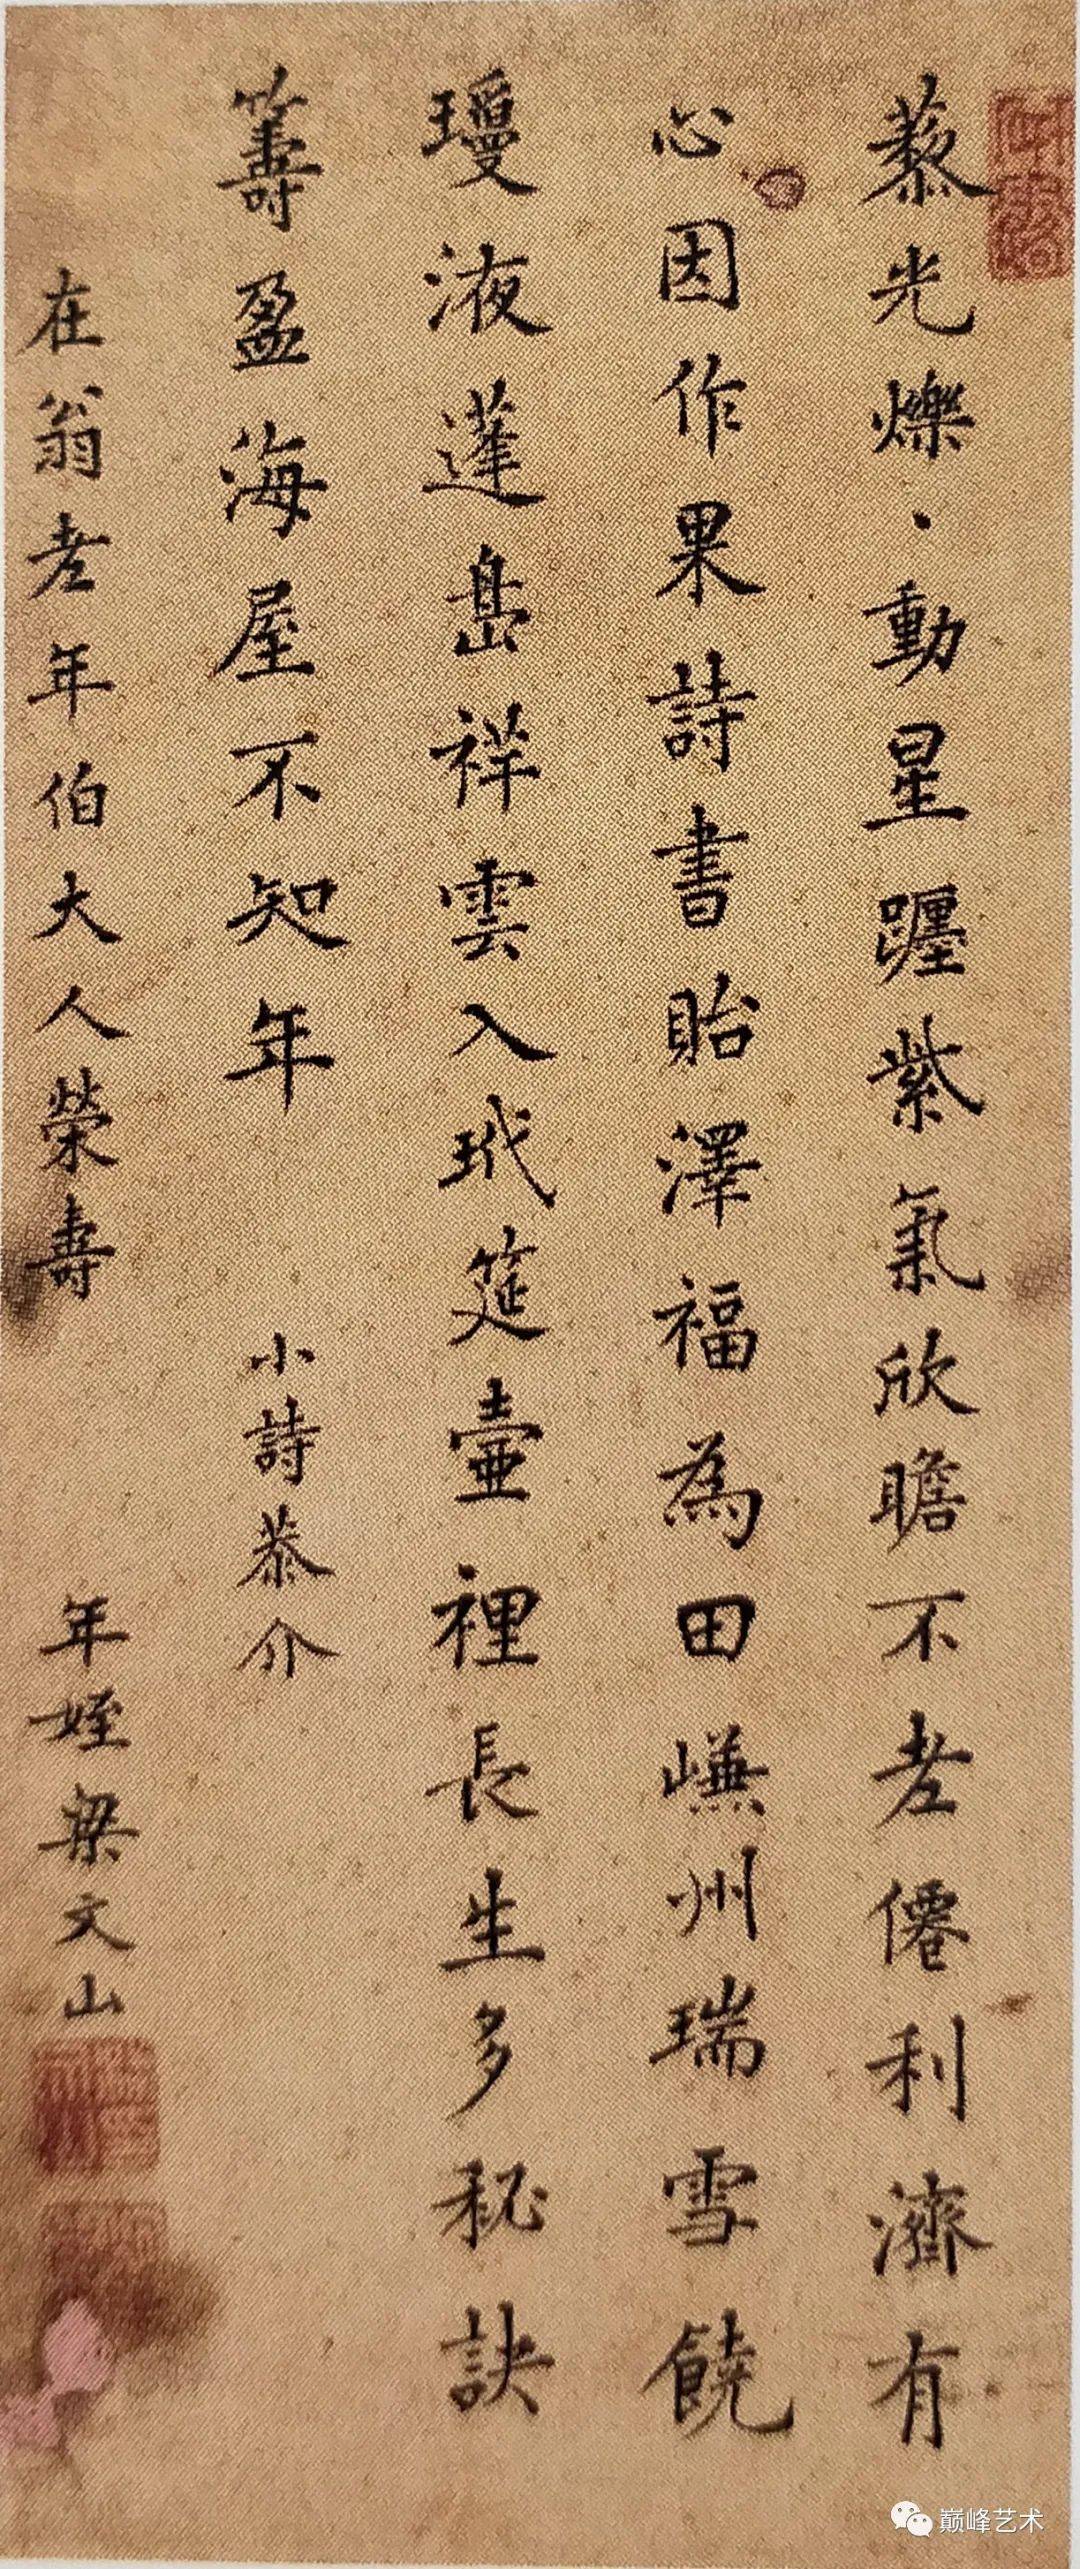 藜光爍丶動星躔紫氣欣瞻不老僊利濟有
心因作果詩書貽澤福為田嵰州瑞雪饒
瓊液蓬島祥雲入玳筵壺裡長生多秘訣
籌盈海屋不知年 小詩恭介
在翁老年伯大人榮壽 年姪梁文山
巅峰艺术